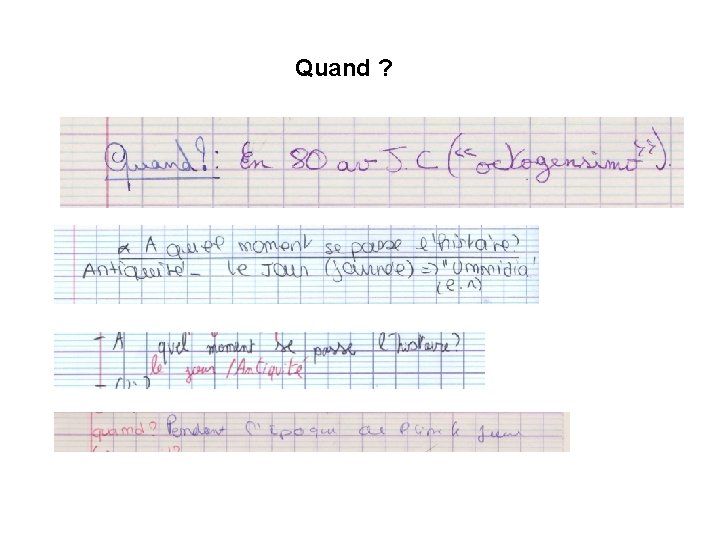 Quand ?
Quand? : En 80 av J.C (<<octogensimo>>).
A quel moment se passe l'histoire?
Antiquité - le jour (journée) => "Ummidia"
(l.1)
- A quel moment se passe l'histoire?
le jour / Antiquité
quand? Pendant l'époque de Pline le jeune